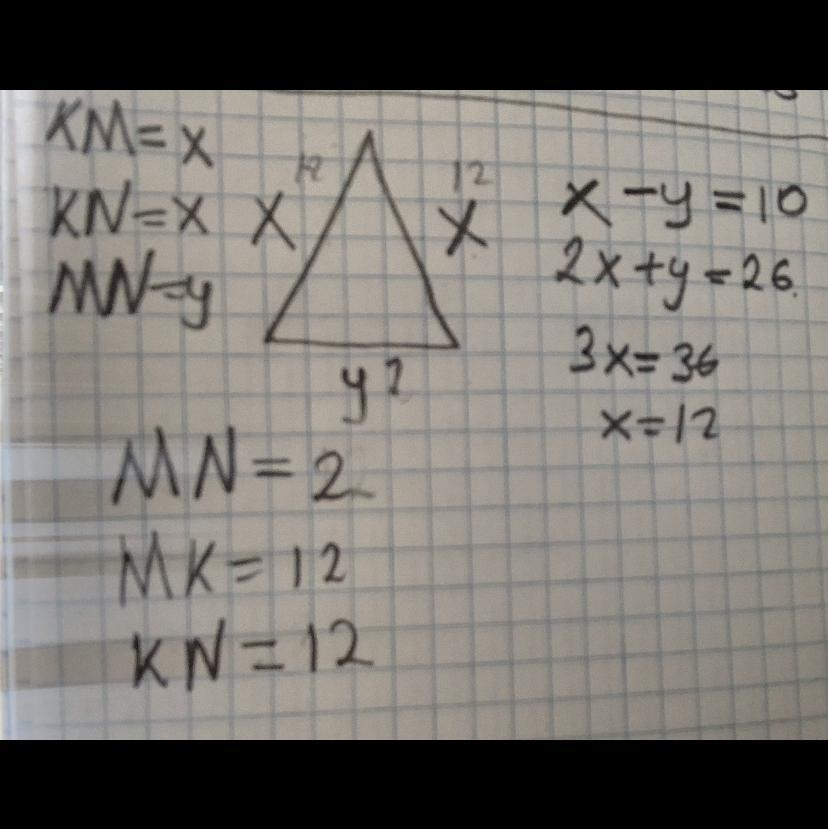 KM=x
KN=x
MN=y
12
12
X
X
y?
x-y=10
2x+y=26.
3x=36
x=12
MN=2
MK=12
KN=12